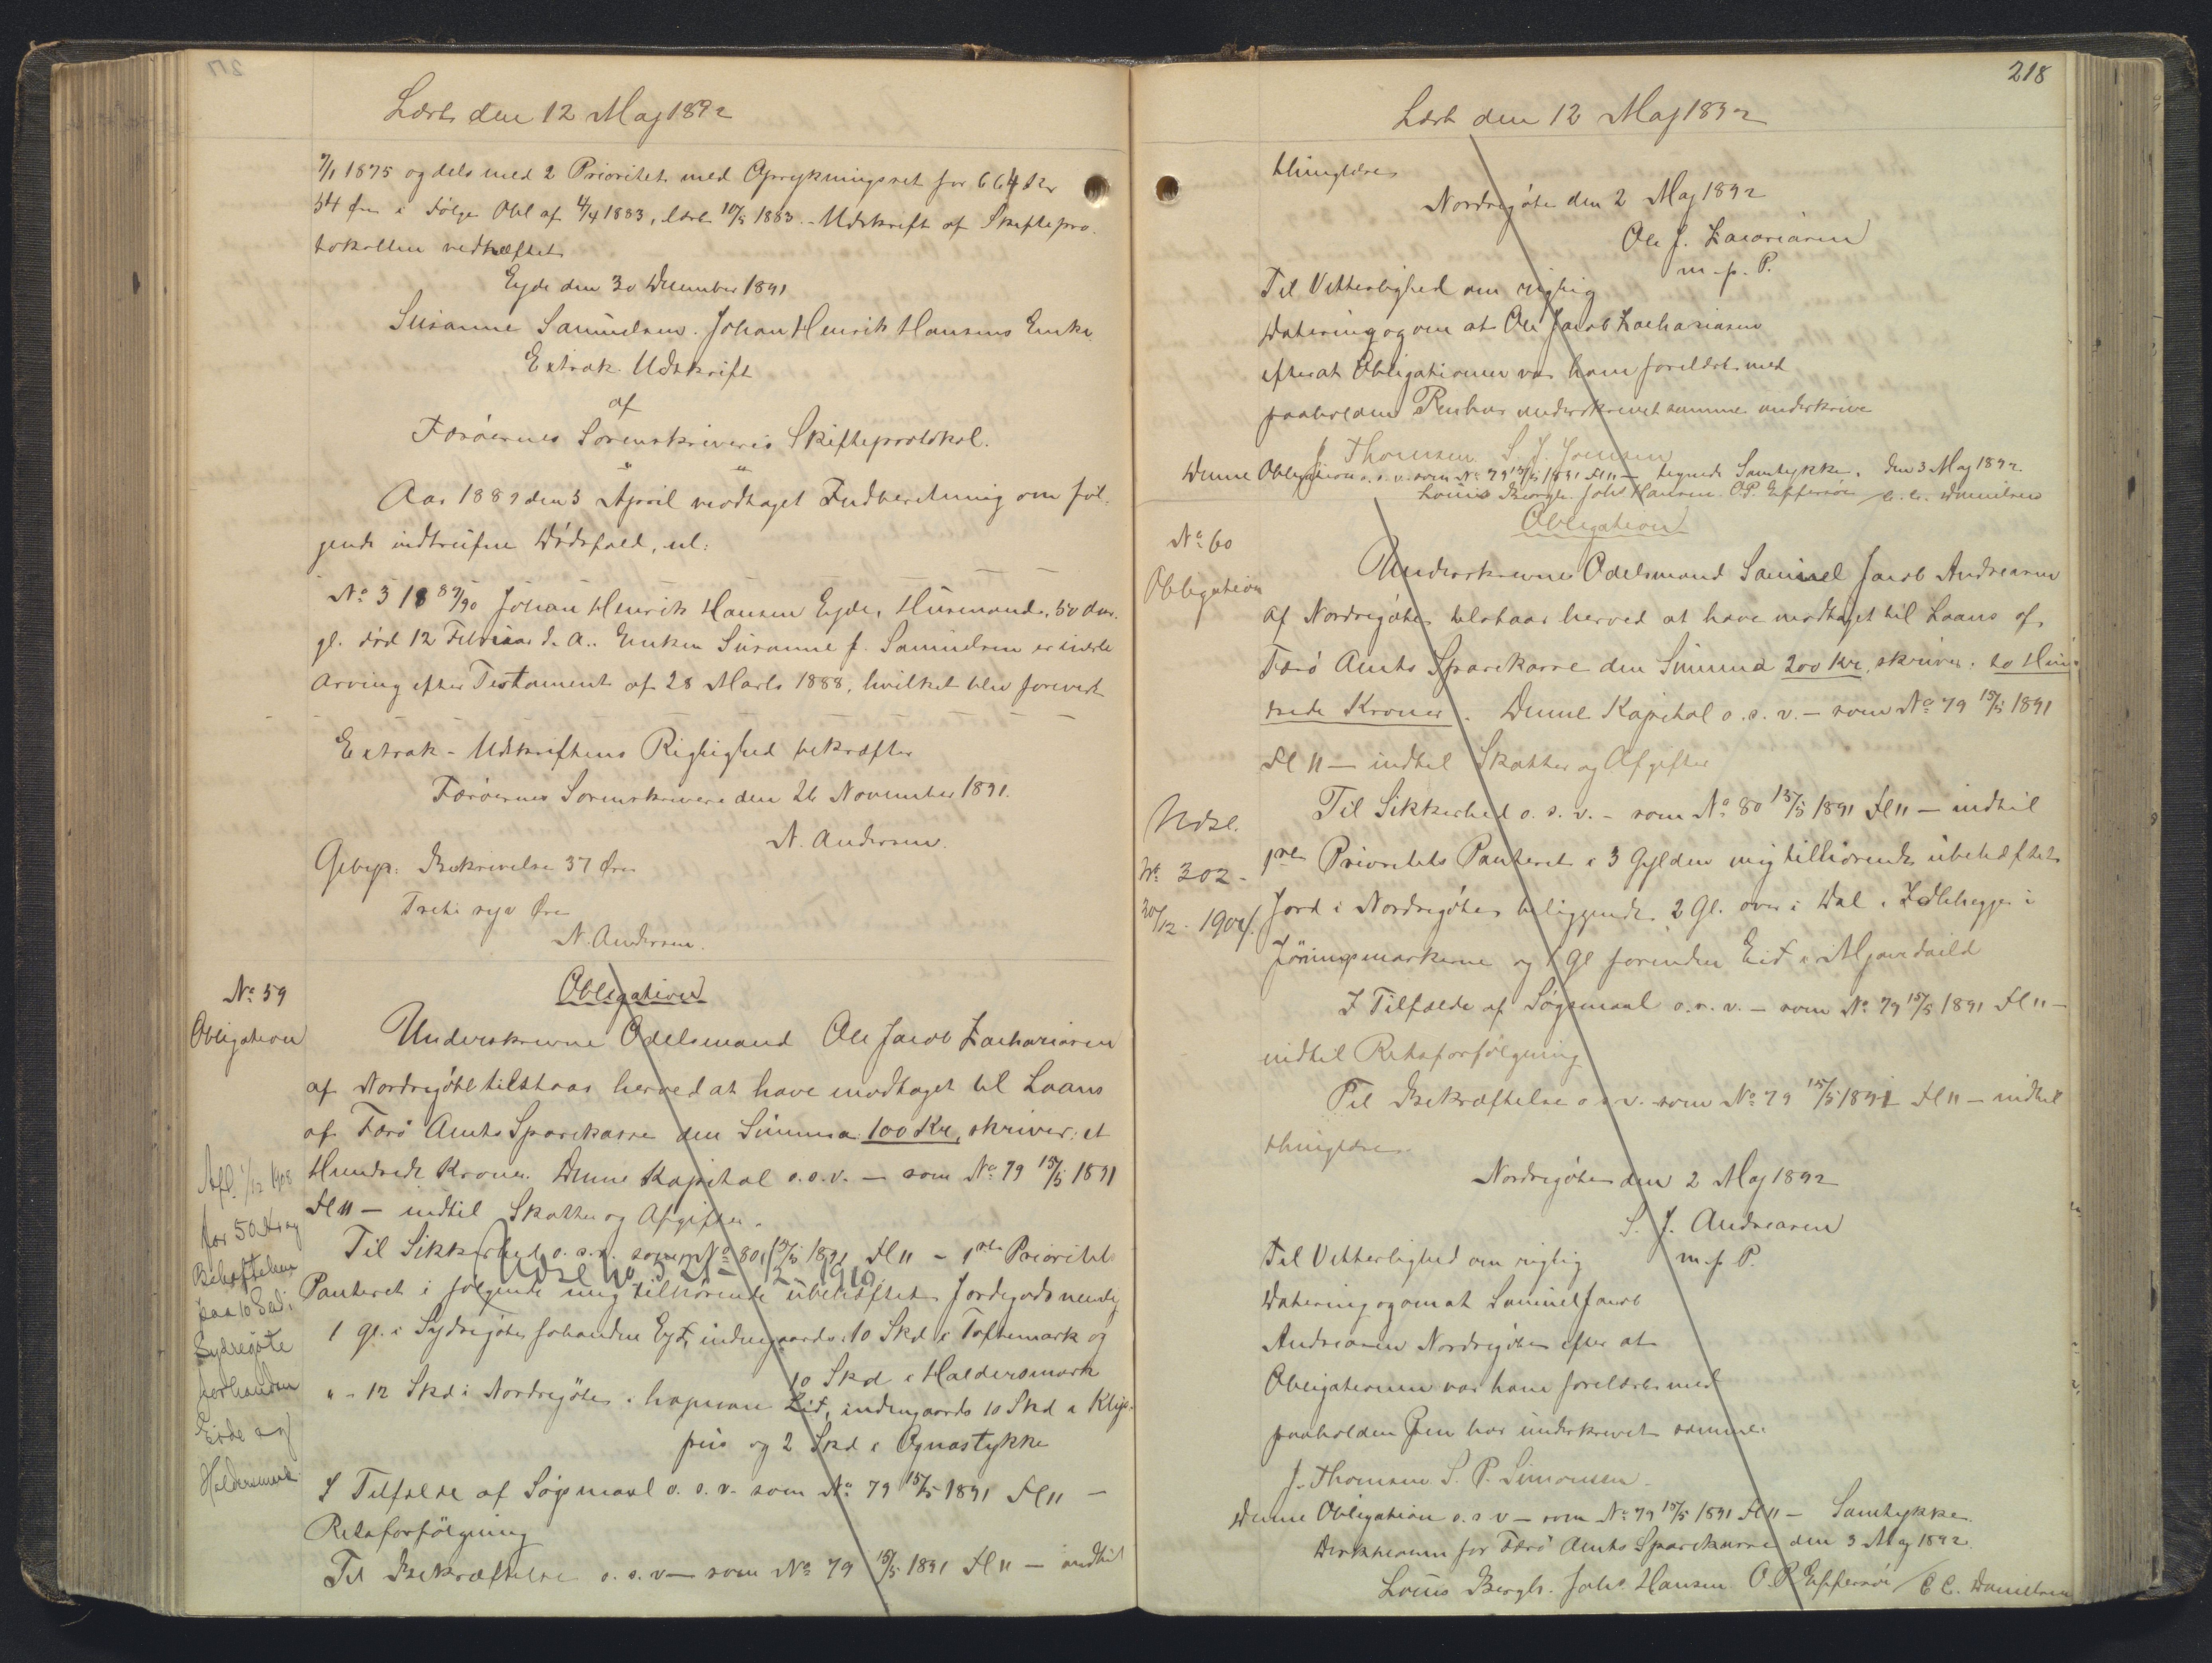 217
Læst den 12 Maj 1892
7/1 1875 og dels med 2 Prioritet med Oprykningsret for 664 Kr
54 Øre i Følge Obl af 4/4 1883, læst 10/5 1883. - Udskrift af Skiftepro-
tokollen vedhæftet
Ejde den 30 December 1891
Susanne Samuelsen. Johan Henrik Hansens Enke
Extrak. Udskrift
af
Færøernes Sorenskriveris Skifteprotokol.
Aar 1889 den 3 April modtaget Indberetning om føl-
gende indtrufne Dødsfald, nl:
No 3 1889/90 Johan Henrik Hansen Ejde, Husmand, 50 Aar
gl. død 12 Februar d. A.. Enken Susanne f. Samuelsen er eneste
Arving efter Testament af 28 Marts 1888, hvilket blev forevist
Extrak-Udskriftens Rigtighed bekræfter
Færøernes Sorenskriveri den 26 November 1891.
N. Andersen.
Gebyr. Beskrivelse 37 Øre
Treti syv Øre
N. Andersen.
No 59
Obligation
Obligation
Underskrevne Odelsmand Ole Jacob Zachariasen
af Nordregøte tilstaar herved at have modtaget til Laans
af Færø Amts Sparekasse den Summa 100 Kr, skriver: et
Hundrede Kroner. Denne Kapital o.s.v. — som No 79 15/5 1891
Fl 11 — indtil Skatter og Afgifter.
Til Sikkerhed o.s.v. som No 80 15/5 1891 Fl 11 - 1ste Prioritets
Udsl No 3
1910.
Panteret i følgende mig tilhørende ubehæftet Jordegods nemlig
1 Gl. i Sydregøte forhanden Eyd, indengaards: 10 Skd i Toftemark og
10 Skd i Haldersmark
" - 12 Skd i Nordregøte: hapnan Eid, indengaards 10 Skd i
og 2 Skd i Ognastykke
I Tilfælde af Søgsmaal o.s.v. som No 79 15/5 1891 Fl 11 —
Retsforfølgning
Til Bekræftelse o.s.v — som No 79 15/5 1891 Fl 11 — indtil
Afl. 1/12 1908
for 50 Kr og
Behæftelsen
paa 10 Skd i
Sydregøte
forhanden
Eide
Haldersmark
218
Læst den 12 Maj 1892
thinglæses
Nordregøte den 2 Maj 1892
Ole J. Zacariasen
m. f. P.
Til Vitterlighed om rigtig
Datering og om at Ole Jacob Zachariasen
efter at Obligationen var ham forelæst med
paaholden Pen har underskrevet samme underskrive
J Thomsen S. J. Joensen
Denne Obligation o.s.v. som No 79 15/5 1891 Fl 11 — tegnede Samtykke. den 3 Maj 1892
Louis Bergh. Johs Hansen. O.P. Effersøe / C. C. Danielsen
No 60
Obligation
Obligation
Underskrevne Odelsmand Samuel Jacob Andreasen
af Nordregøte tilstaar herved at have modtaget til Laans af
Færø Amts Sparekasse den Summa 200 Kr, skriver: to Hun-
drede Kroner. Denne Kapital o.s.v. — som No 79 15/5 1891
Fl 11 — indtil Skatter og Afgifter
Til Sikkerhed o.s.v. - som No 80 15/5 1891 Fl 11 — indtil
1ste Prioritets Panteret i 3 Gylden mig tilhørende ubehæftet
Jord i Nordregøte beliggende 2 Gl. over i Dal i
og 1 Gl forinden Eid i
Udsl.
No 302 -
30/12 - 1904.
I Tilfælde af Søgsmaal o.s.v. — som No 79 15/5 1891 Fl 11 —
indtil Retsforfølgning
Til Bekræftelse o s v. som No 79 15/5 1891 Fl 11 — indtil
thinglæses.
Nordregøte den 2 Maj 1892
S. J. Andreasen
m. f P.
Til Vitterlighed om rigtig
Datering og om at Samuel Jacob
Andreasen Nordregøte efter at
Obligationen var ham forelæst med
paaholden Pen har underskrevet samme.
J. Thomsen S. P. Simonsen.
Denne Obligation o.s v — som No 79 15/5 1891 Fl 11 — Samtykke.
Direktionen for Færø Amts Sparekasse den 3 Maj 1892.
Louis Bergh. Johs. Hansen O. P. Effersøe / C C. Danielsen